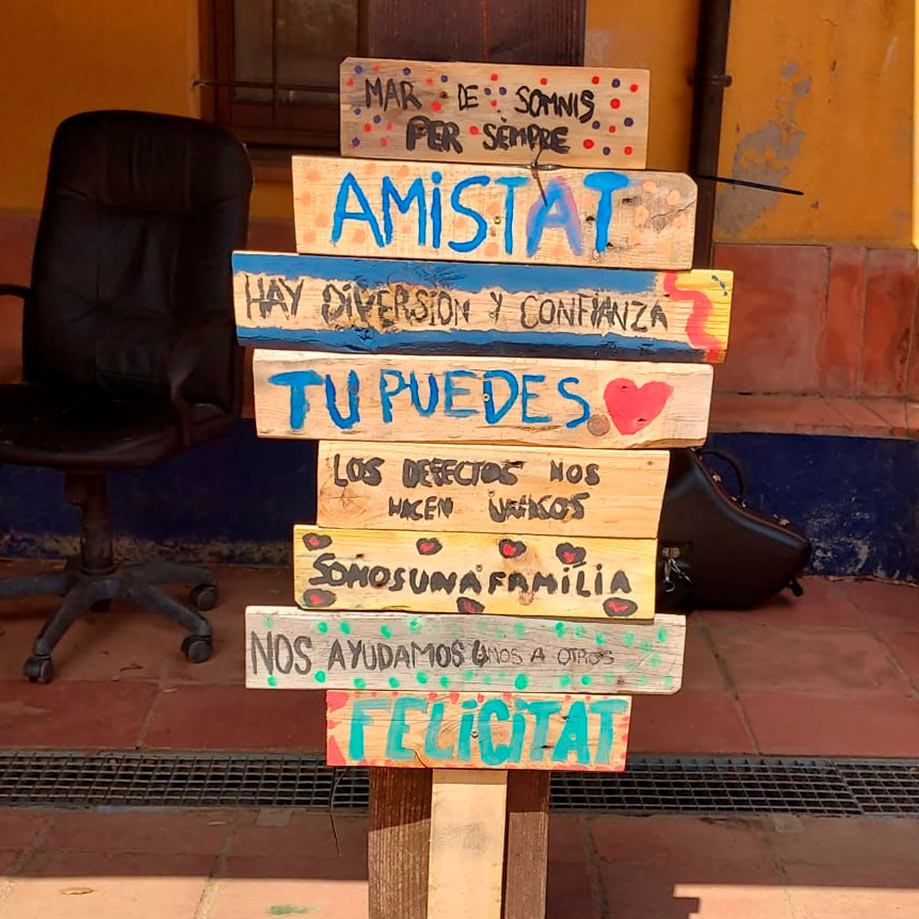 MAR DE SOMNIS
PER SEMPRE
AMISTAT
HAY DIVERSION Y CONFIANZA
TU PUEDES
LOS DEFECTOS NOS
HACEN UNICOS
SOMOS UNA FAMÍLIA
NOS AYUDAMOS UNOS A OTROS
FELICITAT